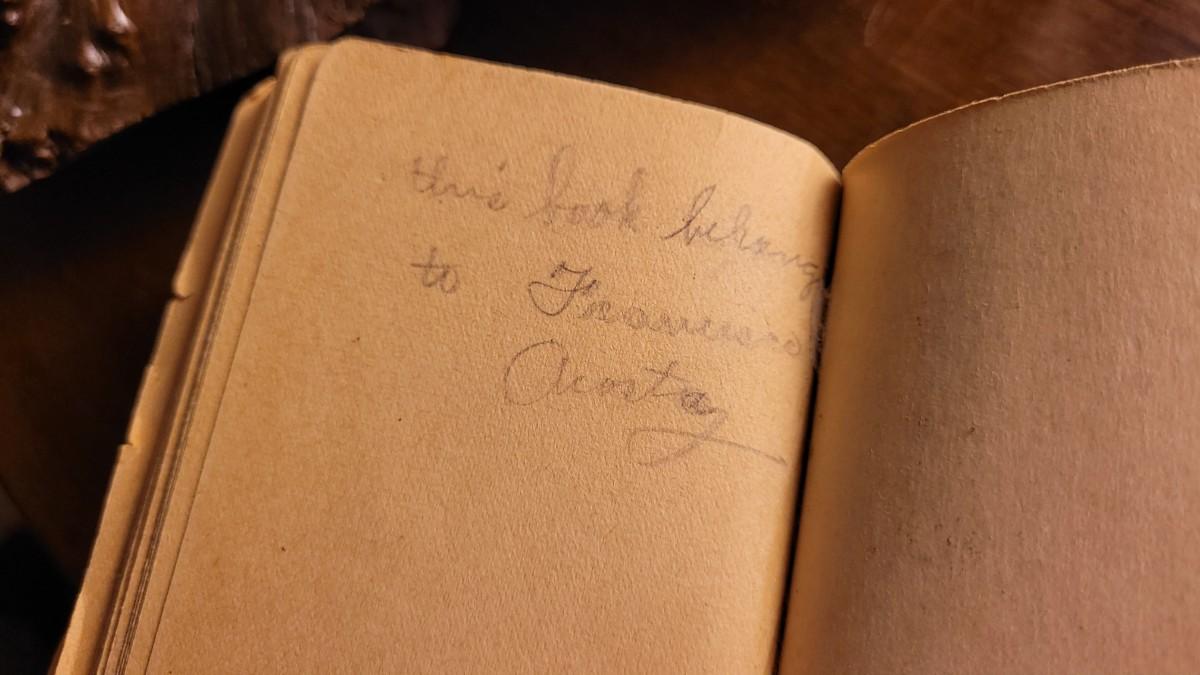 this book belong
to Francisco
Acosta